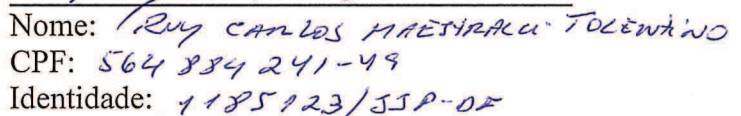 Nome: Ruy CARLOS MAESTRALI TOLENTINO
CPF: 564 884 241-49
Identidade: 1185123/SSP-DF